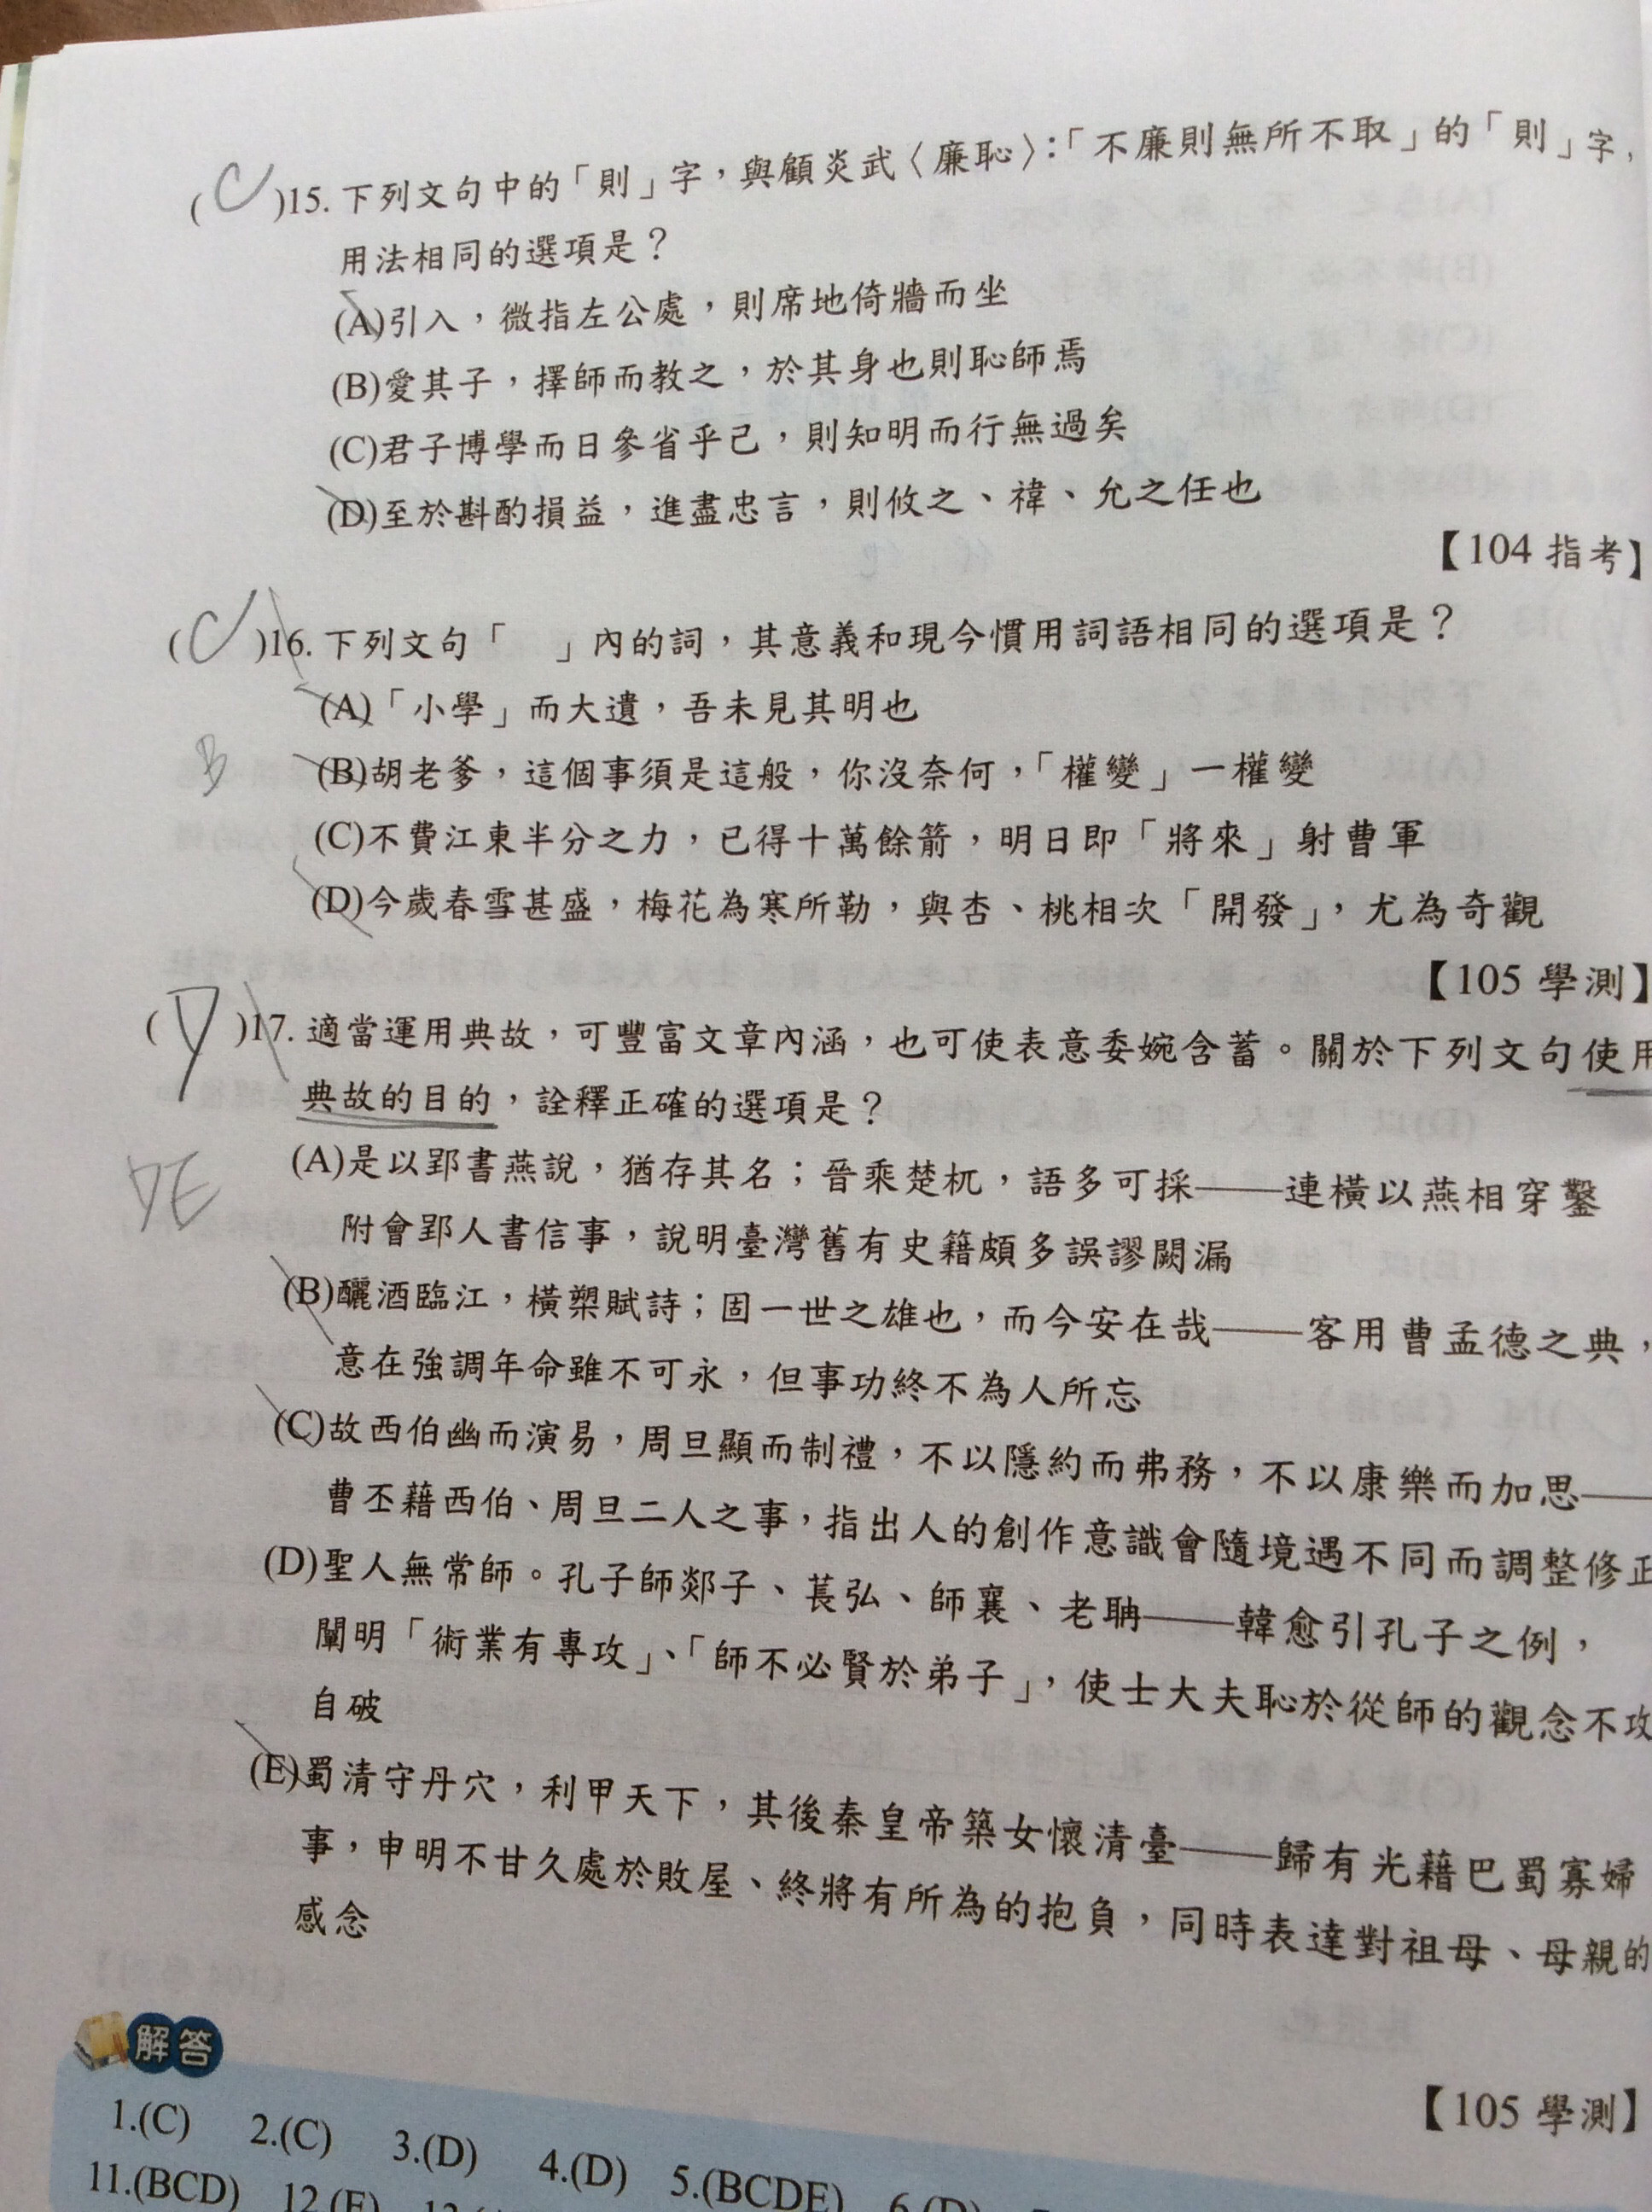 (C)15. 下列文句中的「則」字，與顧炎武〈廉恥〉：「不廉則無所不取」的「則」字，
用法相同的選項是？
(A)引入，微指左公處，則席地倚牆而坐
(B)愛其子，擇師而教之，於其身也則恥師焉
(C)君子博學而日參省乎己，則知明而行無過矣
(D)至於斟酌損益，進盡忠言，則攸之、禕、允之任也
【104 指考】
(C)16. 下列文句「　」內的詞，其意義和現今慣用詞語相同的選項是？
(A)「小學」而大遺，吾未見其明也
B
(B)胡老爹，這個事須是這般，你沒奈何，「權變」一權變
(C)不費江東半分之力，已得十萬餘箭，明日即「將來」射曹軍
(D)今歲春雪甚盛，梅花為寒所勒，與杏、桃相次「開發」，尤為奇觀
【105 學測】
(D)17. 適當運用典故，可豐富文章內涵，也可使表意委婉含蓄。關於下列文句使用
典故的目的，詮釋正確的選項是？
DE
(A)是以郢書燕說，猶存其名；晉乘楚杌，語多可採——連橫以燕相穿鑿
附會郢人書信事，說明臺灣舊有史籍頗多誤謬闕漏
(B)釃酒臨江，橫槊賦詩；固一世之雄也，而今安在哉——客用曹孟德之典，
意在強調年命雖不可永，但事功終不為人所忘
(C)故西伯幽而演易，周旦顯而制禮，不以隱約而弗務，不以康樂而加思——
曹丕藉西伯、周旦二人之事，指出人的創作意識會隨境遇不同而調整修正
(D)聖人無常師。孔子師郯子、萇弘、師襄、老聃——韓愈引孔子之例，
闡明「術業有專攻」、「師不必賢於弟子」，使士大夫恥於從師的觀念不攻
自破
(E)蜀清守丹穴，利甲天下，其後秦皇帝築女懷清臺——歸有光藉巴蜀寡婦
事，申明不甘久處於敗屋、終將有所為的抱負，同時表達對祖母、母親的
感念
【105 學測】
解答
1.(C) 2.(C) 3.(D) 4.(D) 5.(BCDE) 6.(D)
11.(BCD) 12.(E)